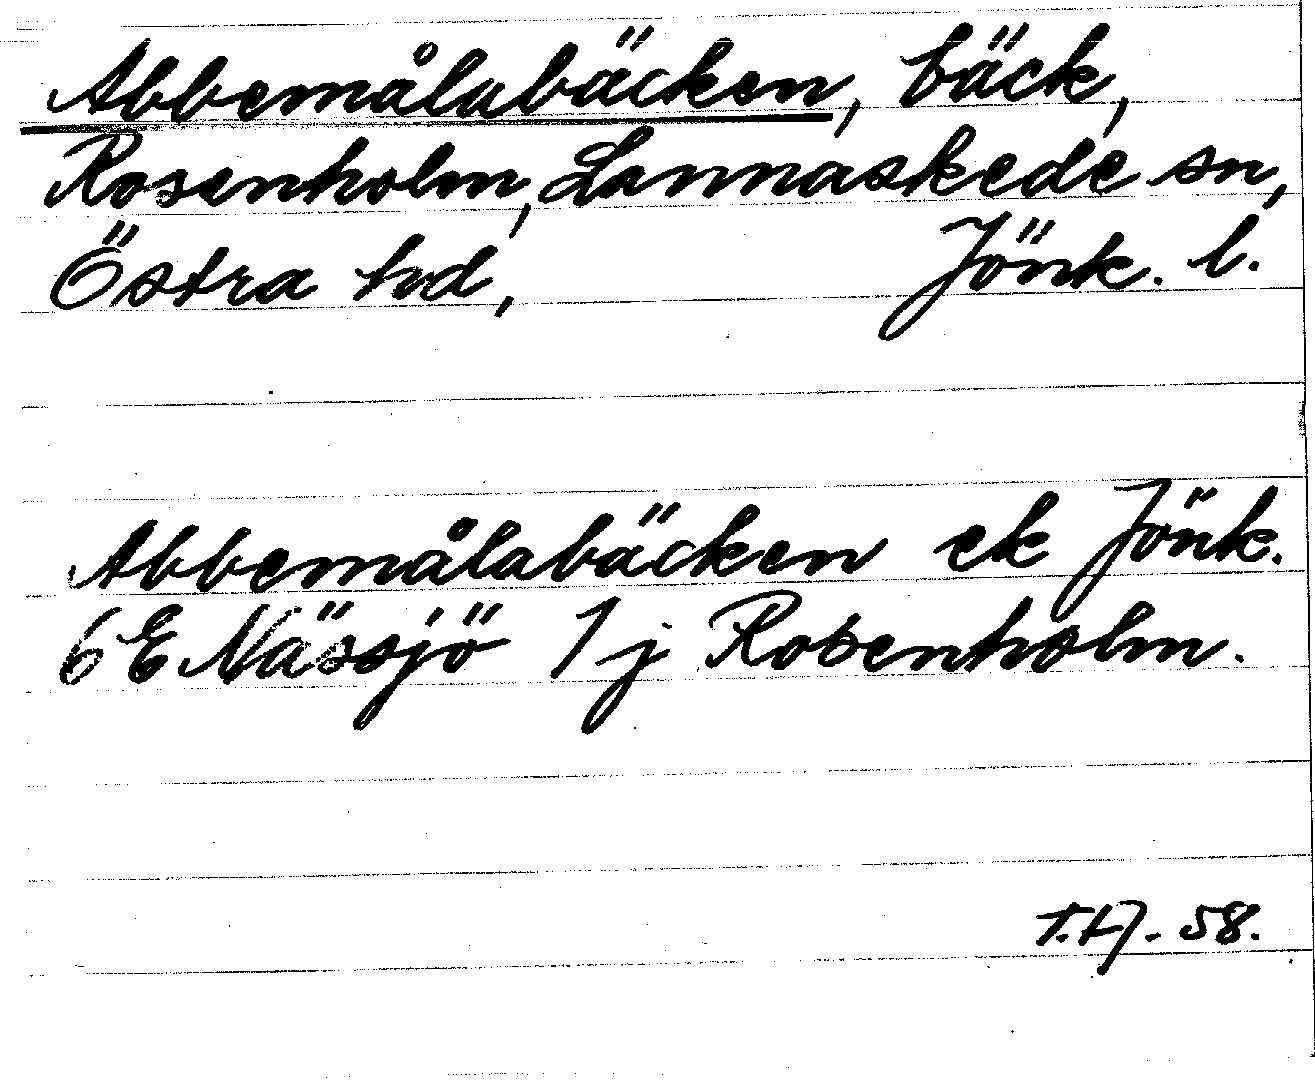 Abbemålabäcken, bäck,
Rosenholm, Lannaskede sn,
Östra hd, Jönk. l.
Abbemålabäcken ek Jönk.
6 E Nässjö 1 j Rosenholm.
58.